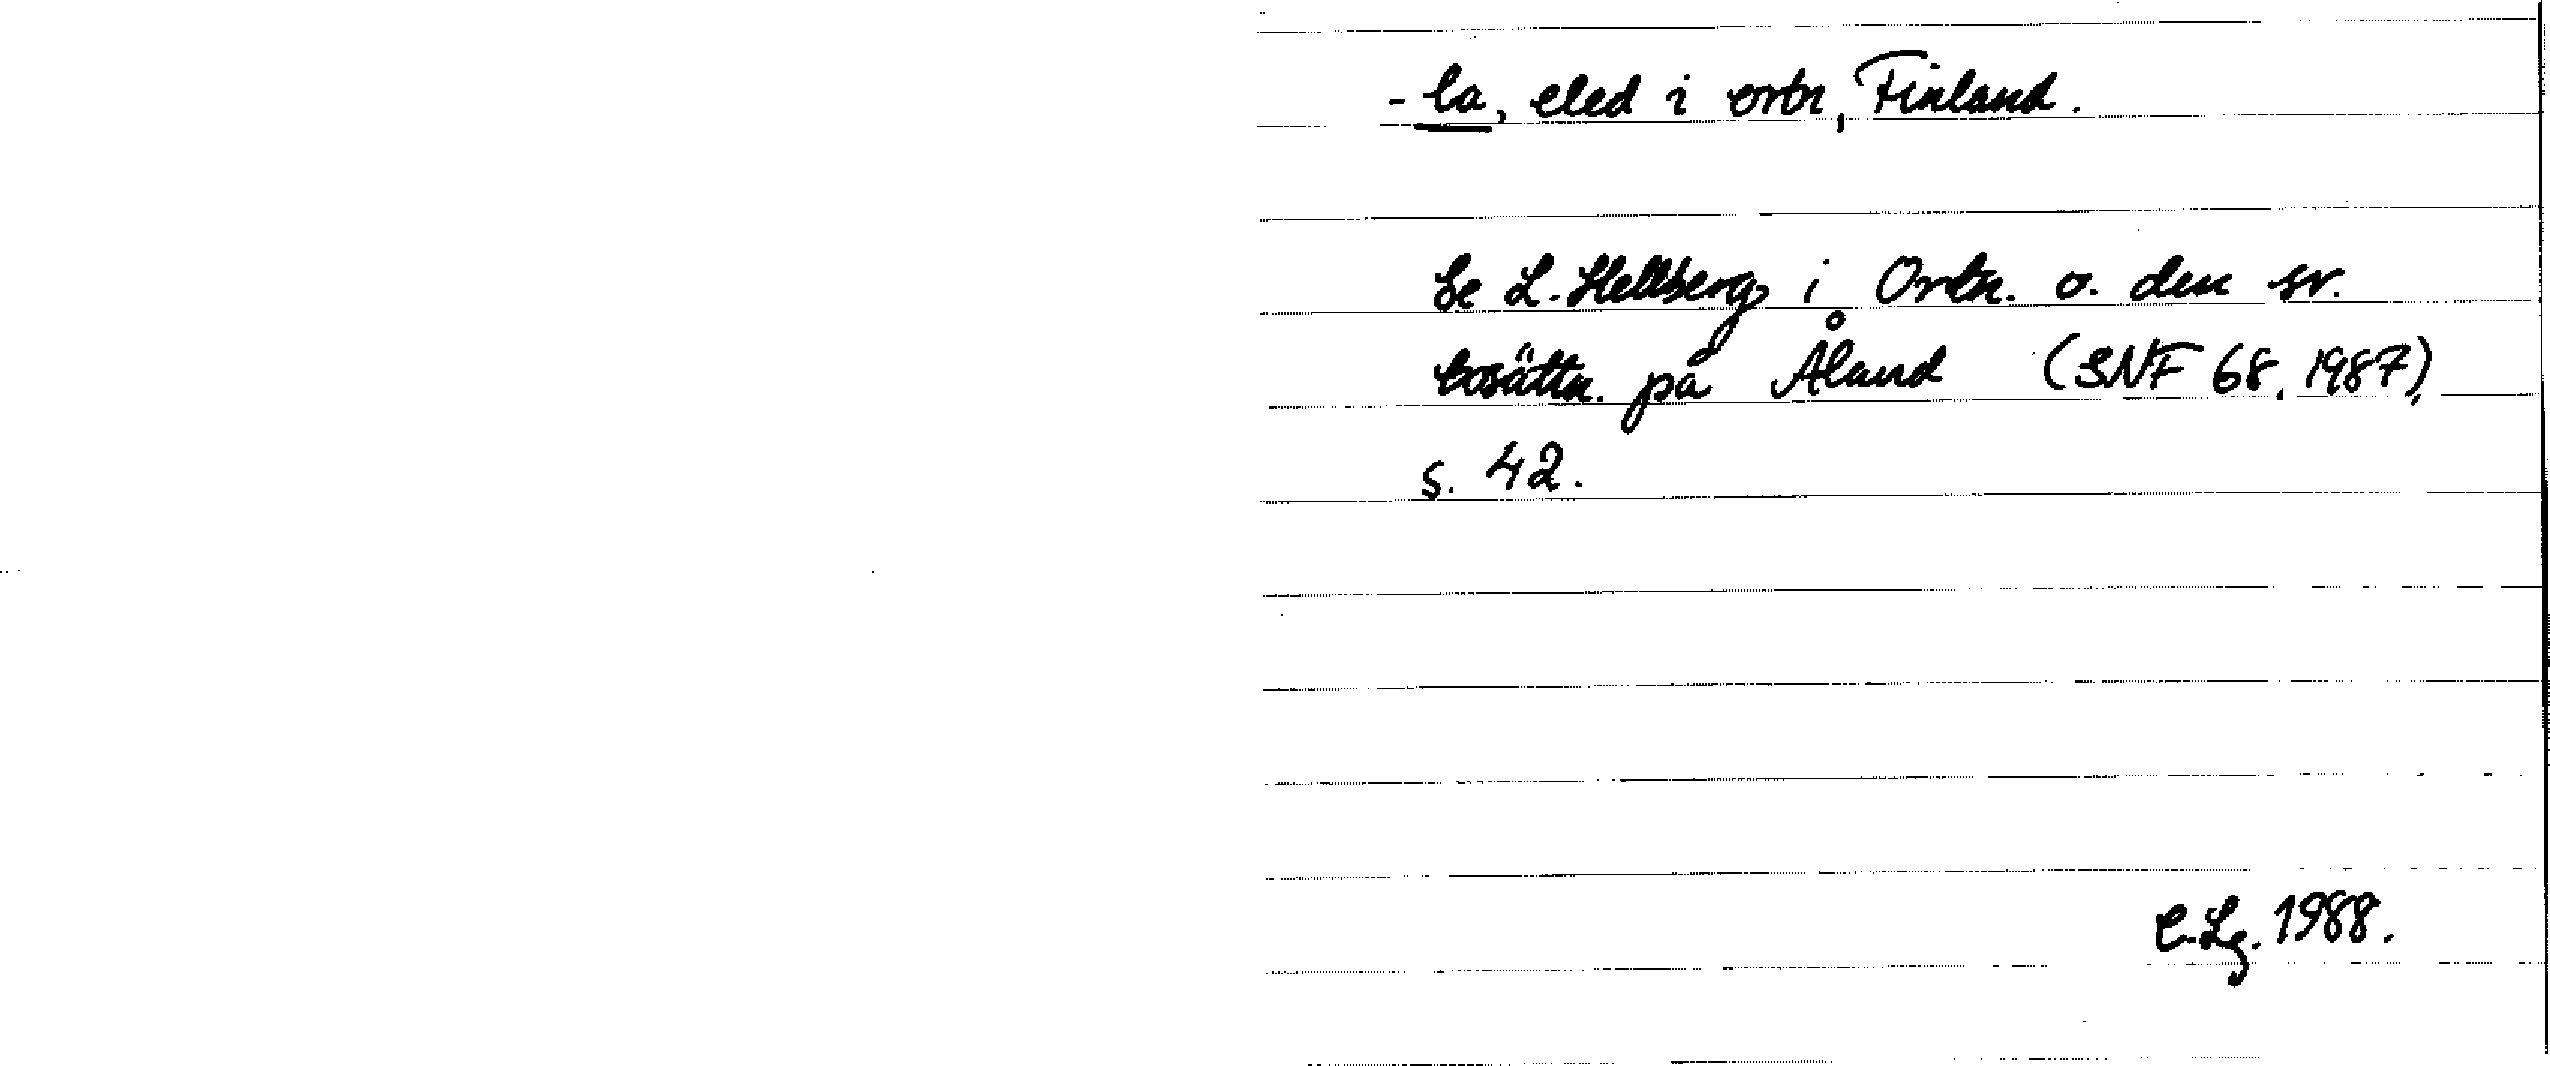 -la, eled i ortn, Finland.
Se L. Hellberg i Ortn. o. den sv.
bosättn. på Åland (SNF 68, 1987),
s. 42.
C. Lg. 1988.